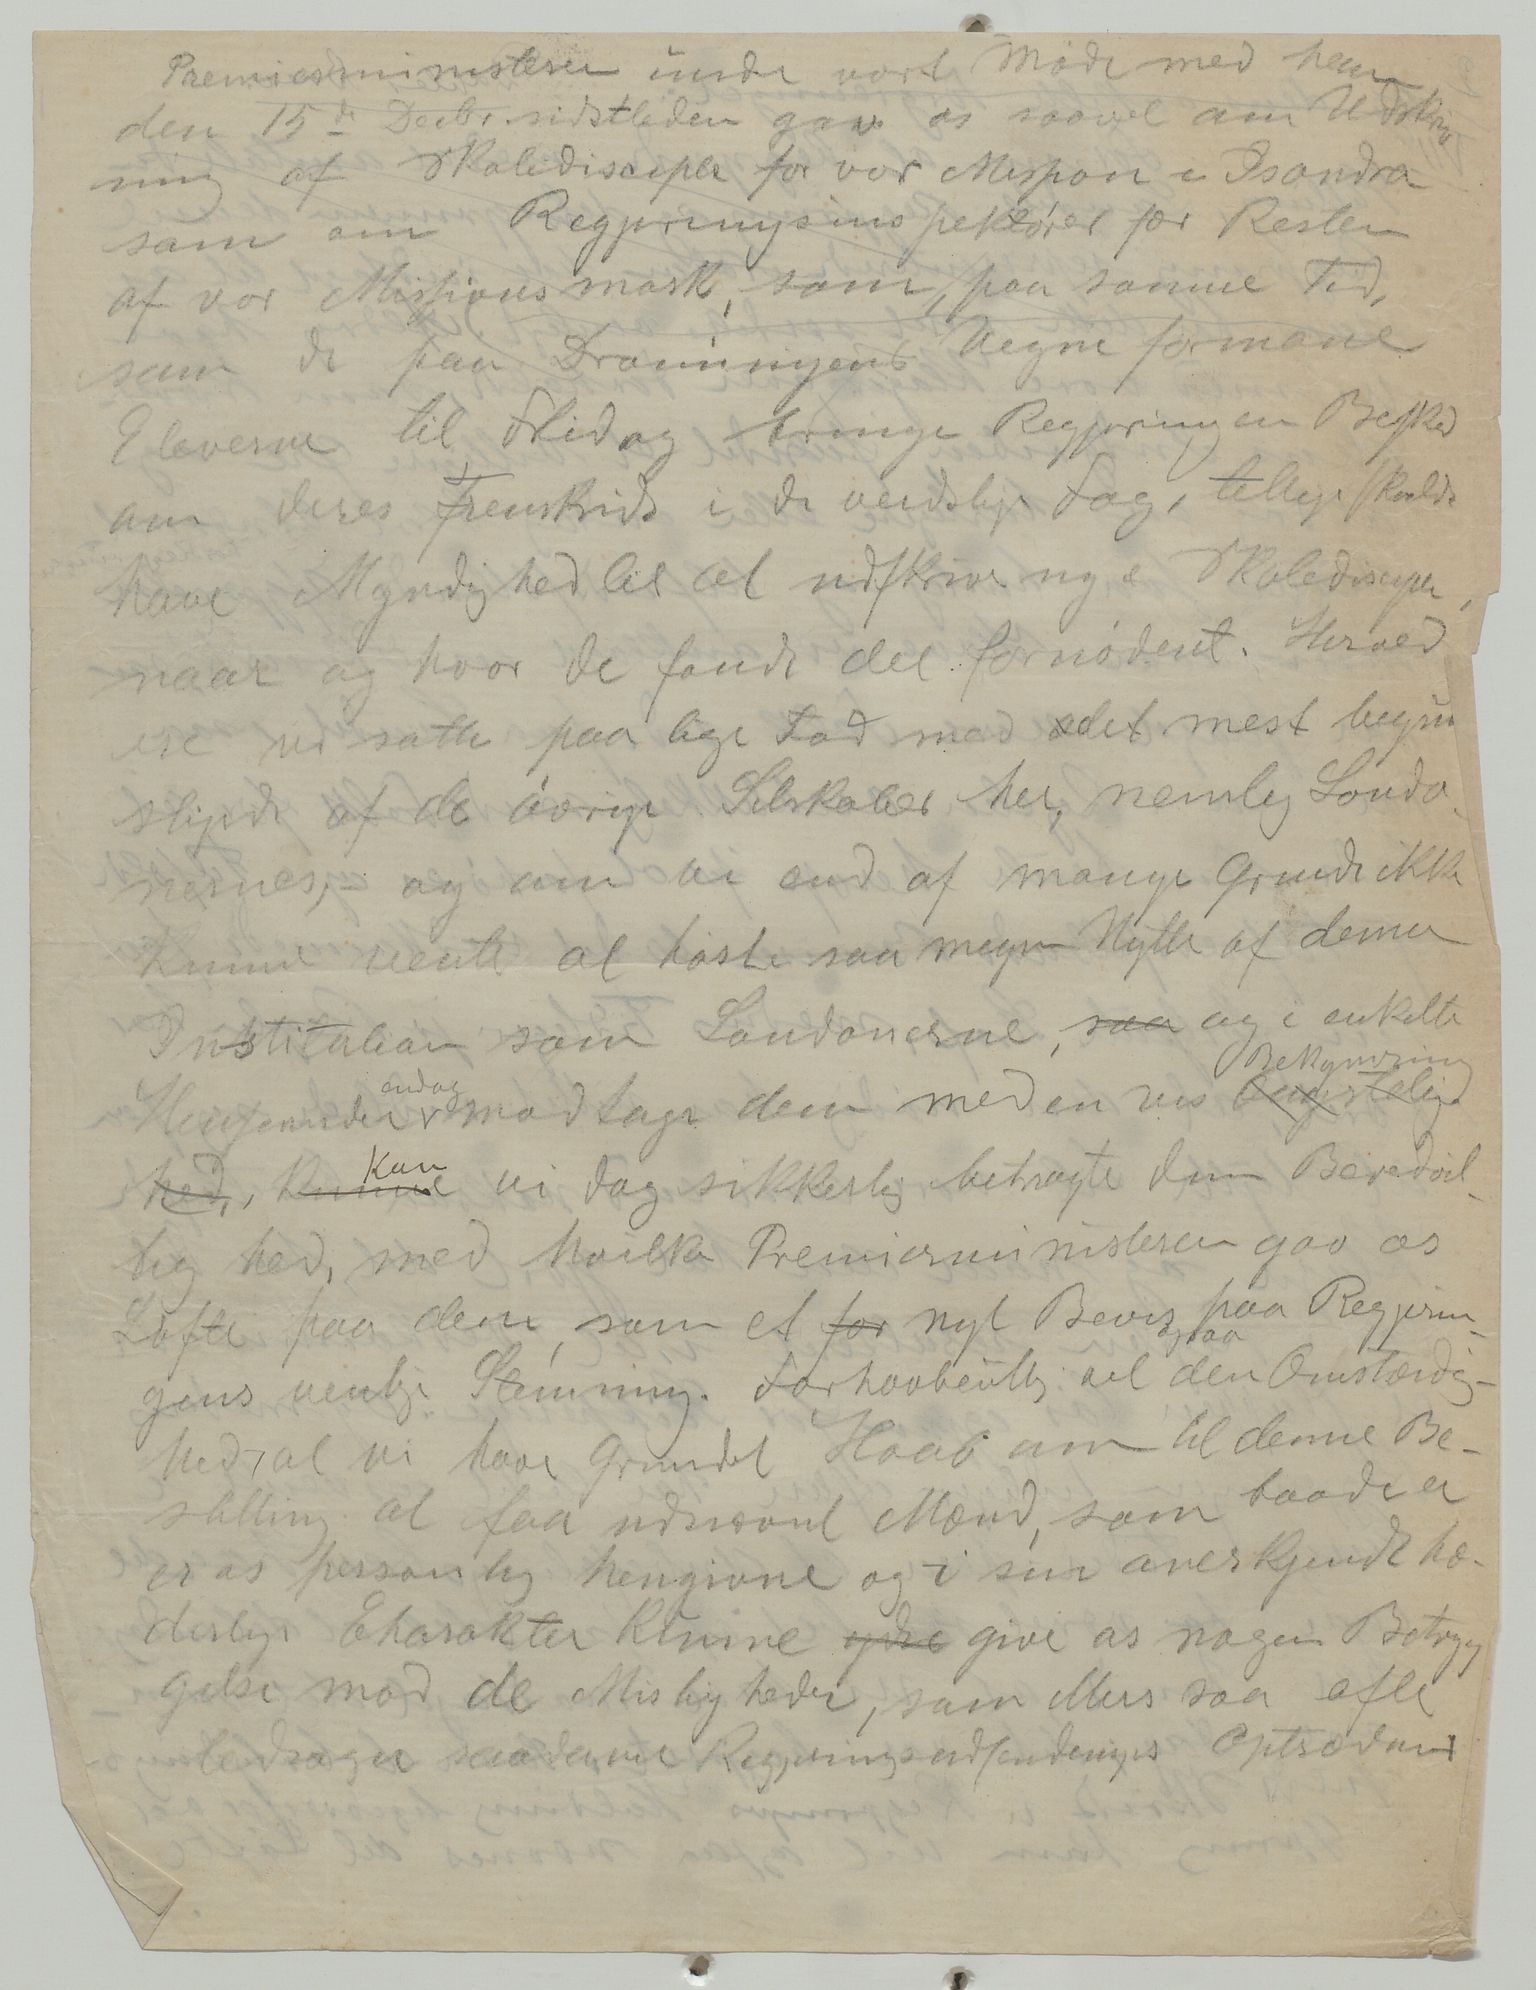 Premierministeren under vort Møde med ham
den 15de Decbr. sidstleden gav os saavel om Udskriv
ning af Skoledisciple for vor Mission i Isandra
som om Regjeringsinspektører for Resten
af vor Missionsmark, som, paa samme Tid,
som de paa Dronningens Vegne formane
Eleverne til Flid og bringe Regjeringen Besked
om deres Fremskridt i de verdslige Fag, tillige skulde
have Myndighed til at udskrive nye Skoledisciple,
naar og hvor de fandt det fornødent. Herved
ere vi satte paa lige Fod med det mest begun
stigede af de øvrige Selskaber her, nemlig Londo-
nernes; og om vi end af mange Grunde ikke
kunne vente at høste saa megen Nytte af denne
Institution som Londonerne, saa og i enkelte
Bekymring
Henseender modtage dem med en vis ængstelig
endog
hed, kunne vi dog sikkerlig betragte den Beredvil-
kan
lighed, med hvilken Premierministeren gav os
Løfte paa dem, som et for nyt Bevis paa Regjerin-
ogsaa
gens venlige Stemning. Forhaabentlig vil den Omstændig-
hed, at vi have grundet Haab om til denne Be-
stilling at faa udnævnt Mænd, som baade er
er os personlig hengivne og i sin anerkjendt hæ-
derlige Charakter kunne ydre give os nogen Betryg
gelse mod de Misligheder, som ellers saa ofte
ledsager saadanne Regjeringsudsendinges Optræden